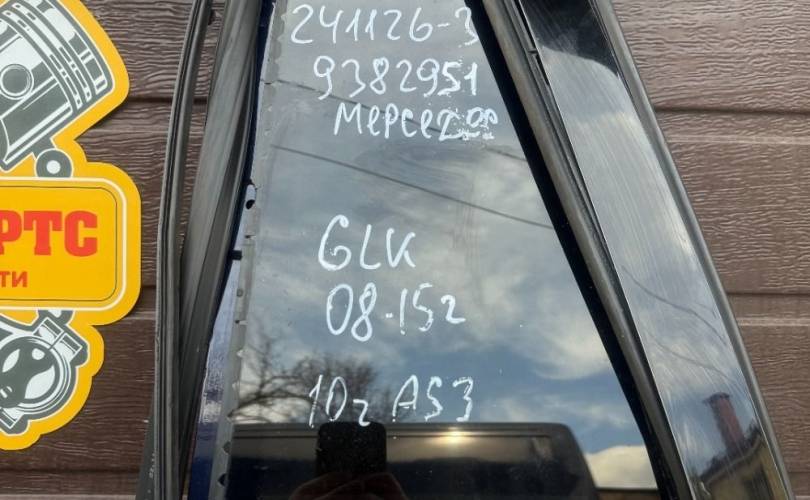 241126-3
9382951
Мерседес
GLK
08-15г
10г А53
РТС
ТИ